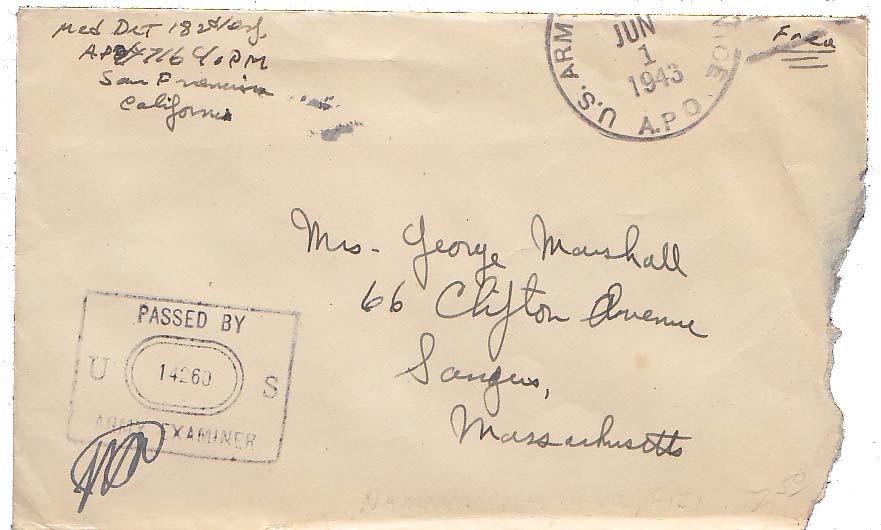 Med Det 182nd Inf.
APO 716 % PM
San Francisco
California
U.S. ARMY
A.P.O.
JUN
1
1943
Free
Mrs. George Marshall
66 Clifton Avenue
Saugus,
Massachusetts
PASSED BY
U S
14260
ARMY EXAMINER